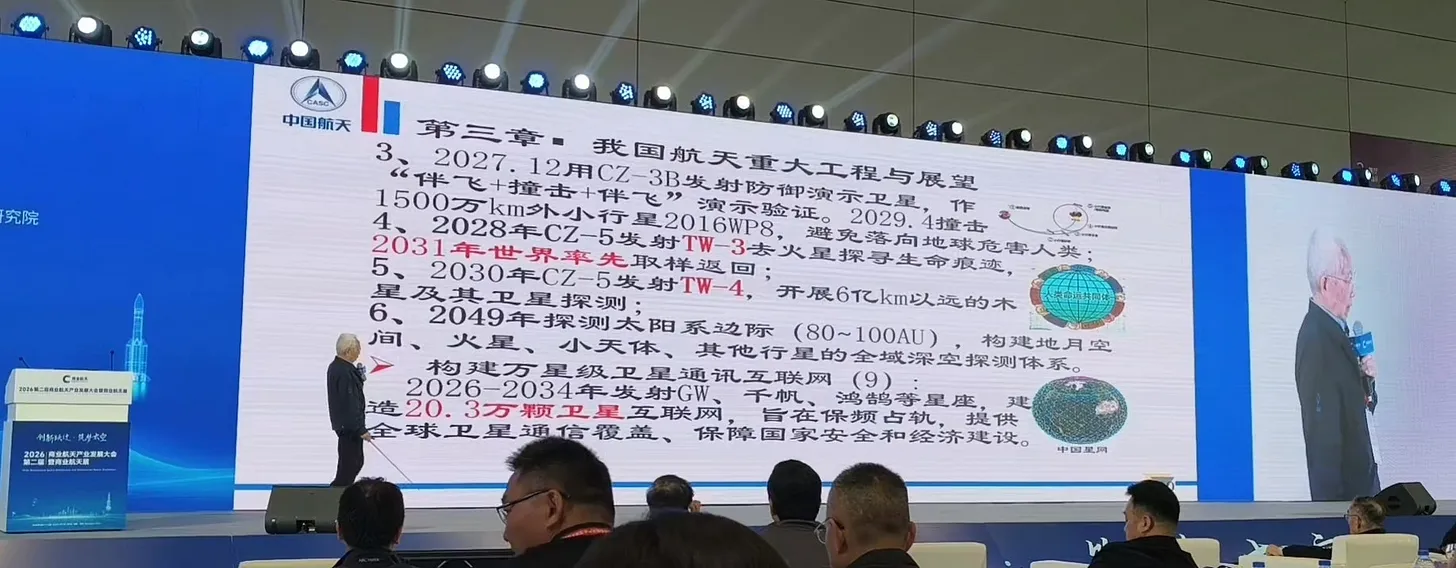 研究院
CASC
中国航天
第三章：我国航天重大工程与展望
3、2027.12用CZ-3B发射防御演示卫星，作
“伴飞+撞击+伴飞”演示验证。2029.4撞击
1500万km外小行星2016WP8，避免落向地球危害人类；
4、2028年CZ-5发射TW-3去火星探寻生命痕迹，
2031年世界率先取样返回；
5、2030年CZ-5发射TW-4，开展6亿km以远的木
星及其卫星探测；
6、2049年探测太阳系边际（80~100AU），构建地月空
间、火星、小天体、其他行星的全域深空探测体系。
构建万星级卫星通讯互联网（9）：
2026-2034年发射GW、千帆、鸿鹄等星座，建
造20.3万颗卫星互联网，旨在保频占轨，提供
全球卫星通信覆盖、保障国家安全和经济建设。
人类命运共同体
中国星网
2026第二届商业航天产业发展大会暨商业航天展
2026 商业航天产业发展大会
第二届 暨商业航天展